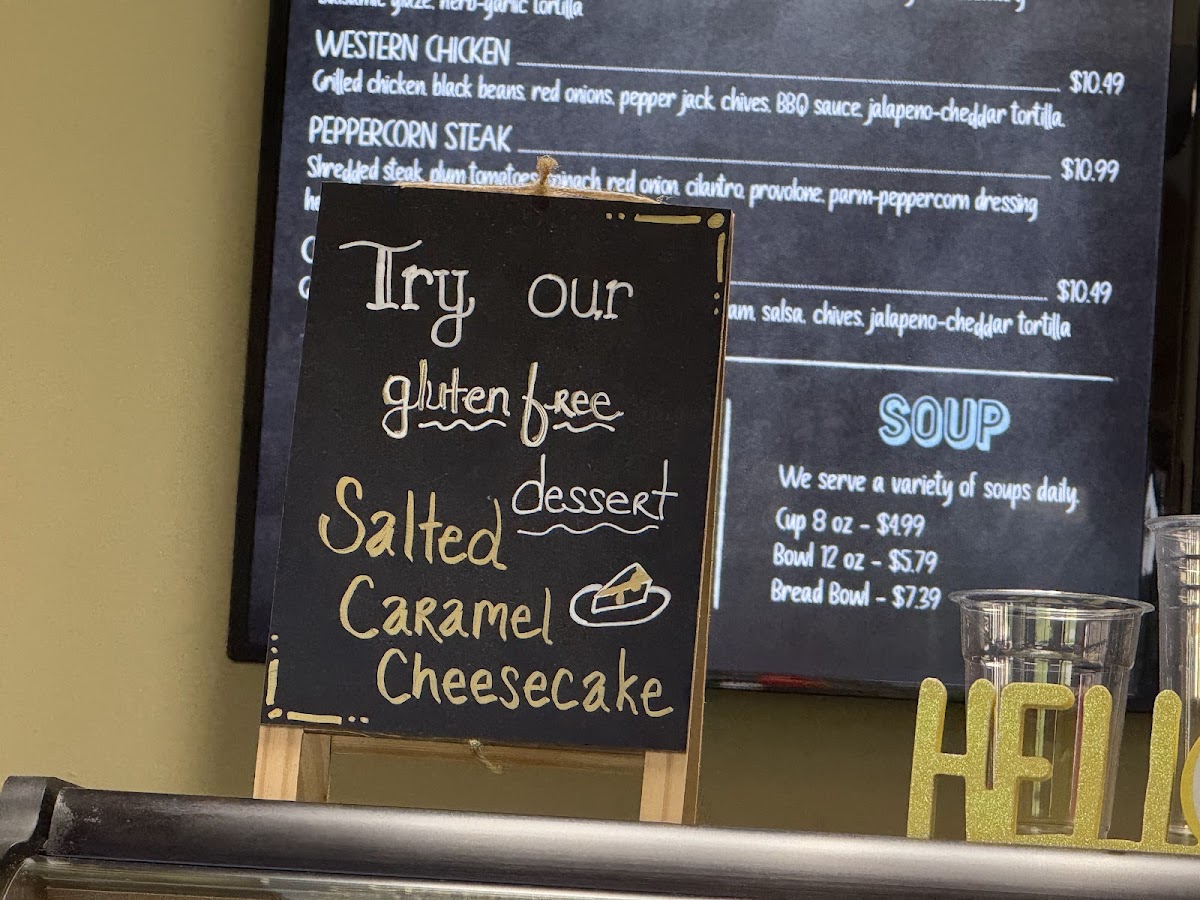 herb-garlic tortilla
WESTERN CHICKEN $10.49
Grilled chicken, black beans, red onions, pepper jack, chives, BBQ sauce, jalapeno-cheddar tortilla.
PEPPERCORN STEAK $10.99
Shredded steak, plum tomatoes, spinach, red onion, cilantro, provolone, parm-peppercorn dressing
$10.49
salsa, chives, jalapeno-cheddar tortilla
Try our
gluten free
dessert
Salted
Caramel
Cheesecake
SOUP
We serve a variety of soups daily.
Cup 8 oz - $4.99
Bowl 12 oz - $5.79
Bread Bowl - $7.39
HELLO